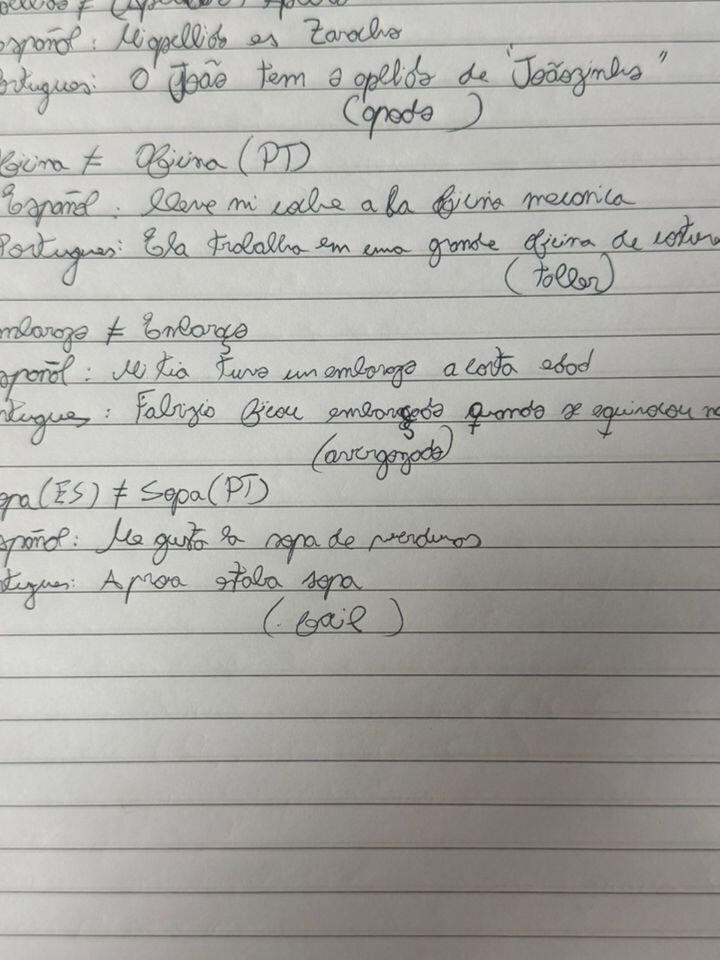 español: Mi apellido es Zaracho
ortugues: O João tem o apellido de "Joãozinho"
(apodo)
ficina ≠ Oficina (PT)
Español: lleve mi coche a la oficina mecanica
Portugues: Ela trabalha em uma grande oficina de costura
(taller)
mbarazo ≠ Embarço
spañol: Mi tia tuvo un embarazo a corta edad
rtugues: Fabrizio ficou embarçado quando se equivocou
(avergonzado)
opa (ES) ≠ Sopa (PT)
spañol: Me gusta la sopa de verduras
rtugues: A prova etaba sopa
(facil)